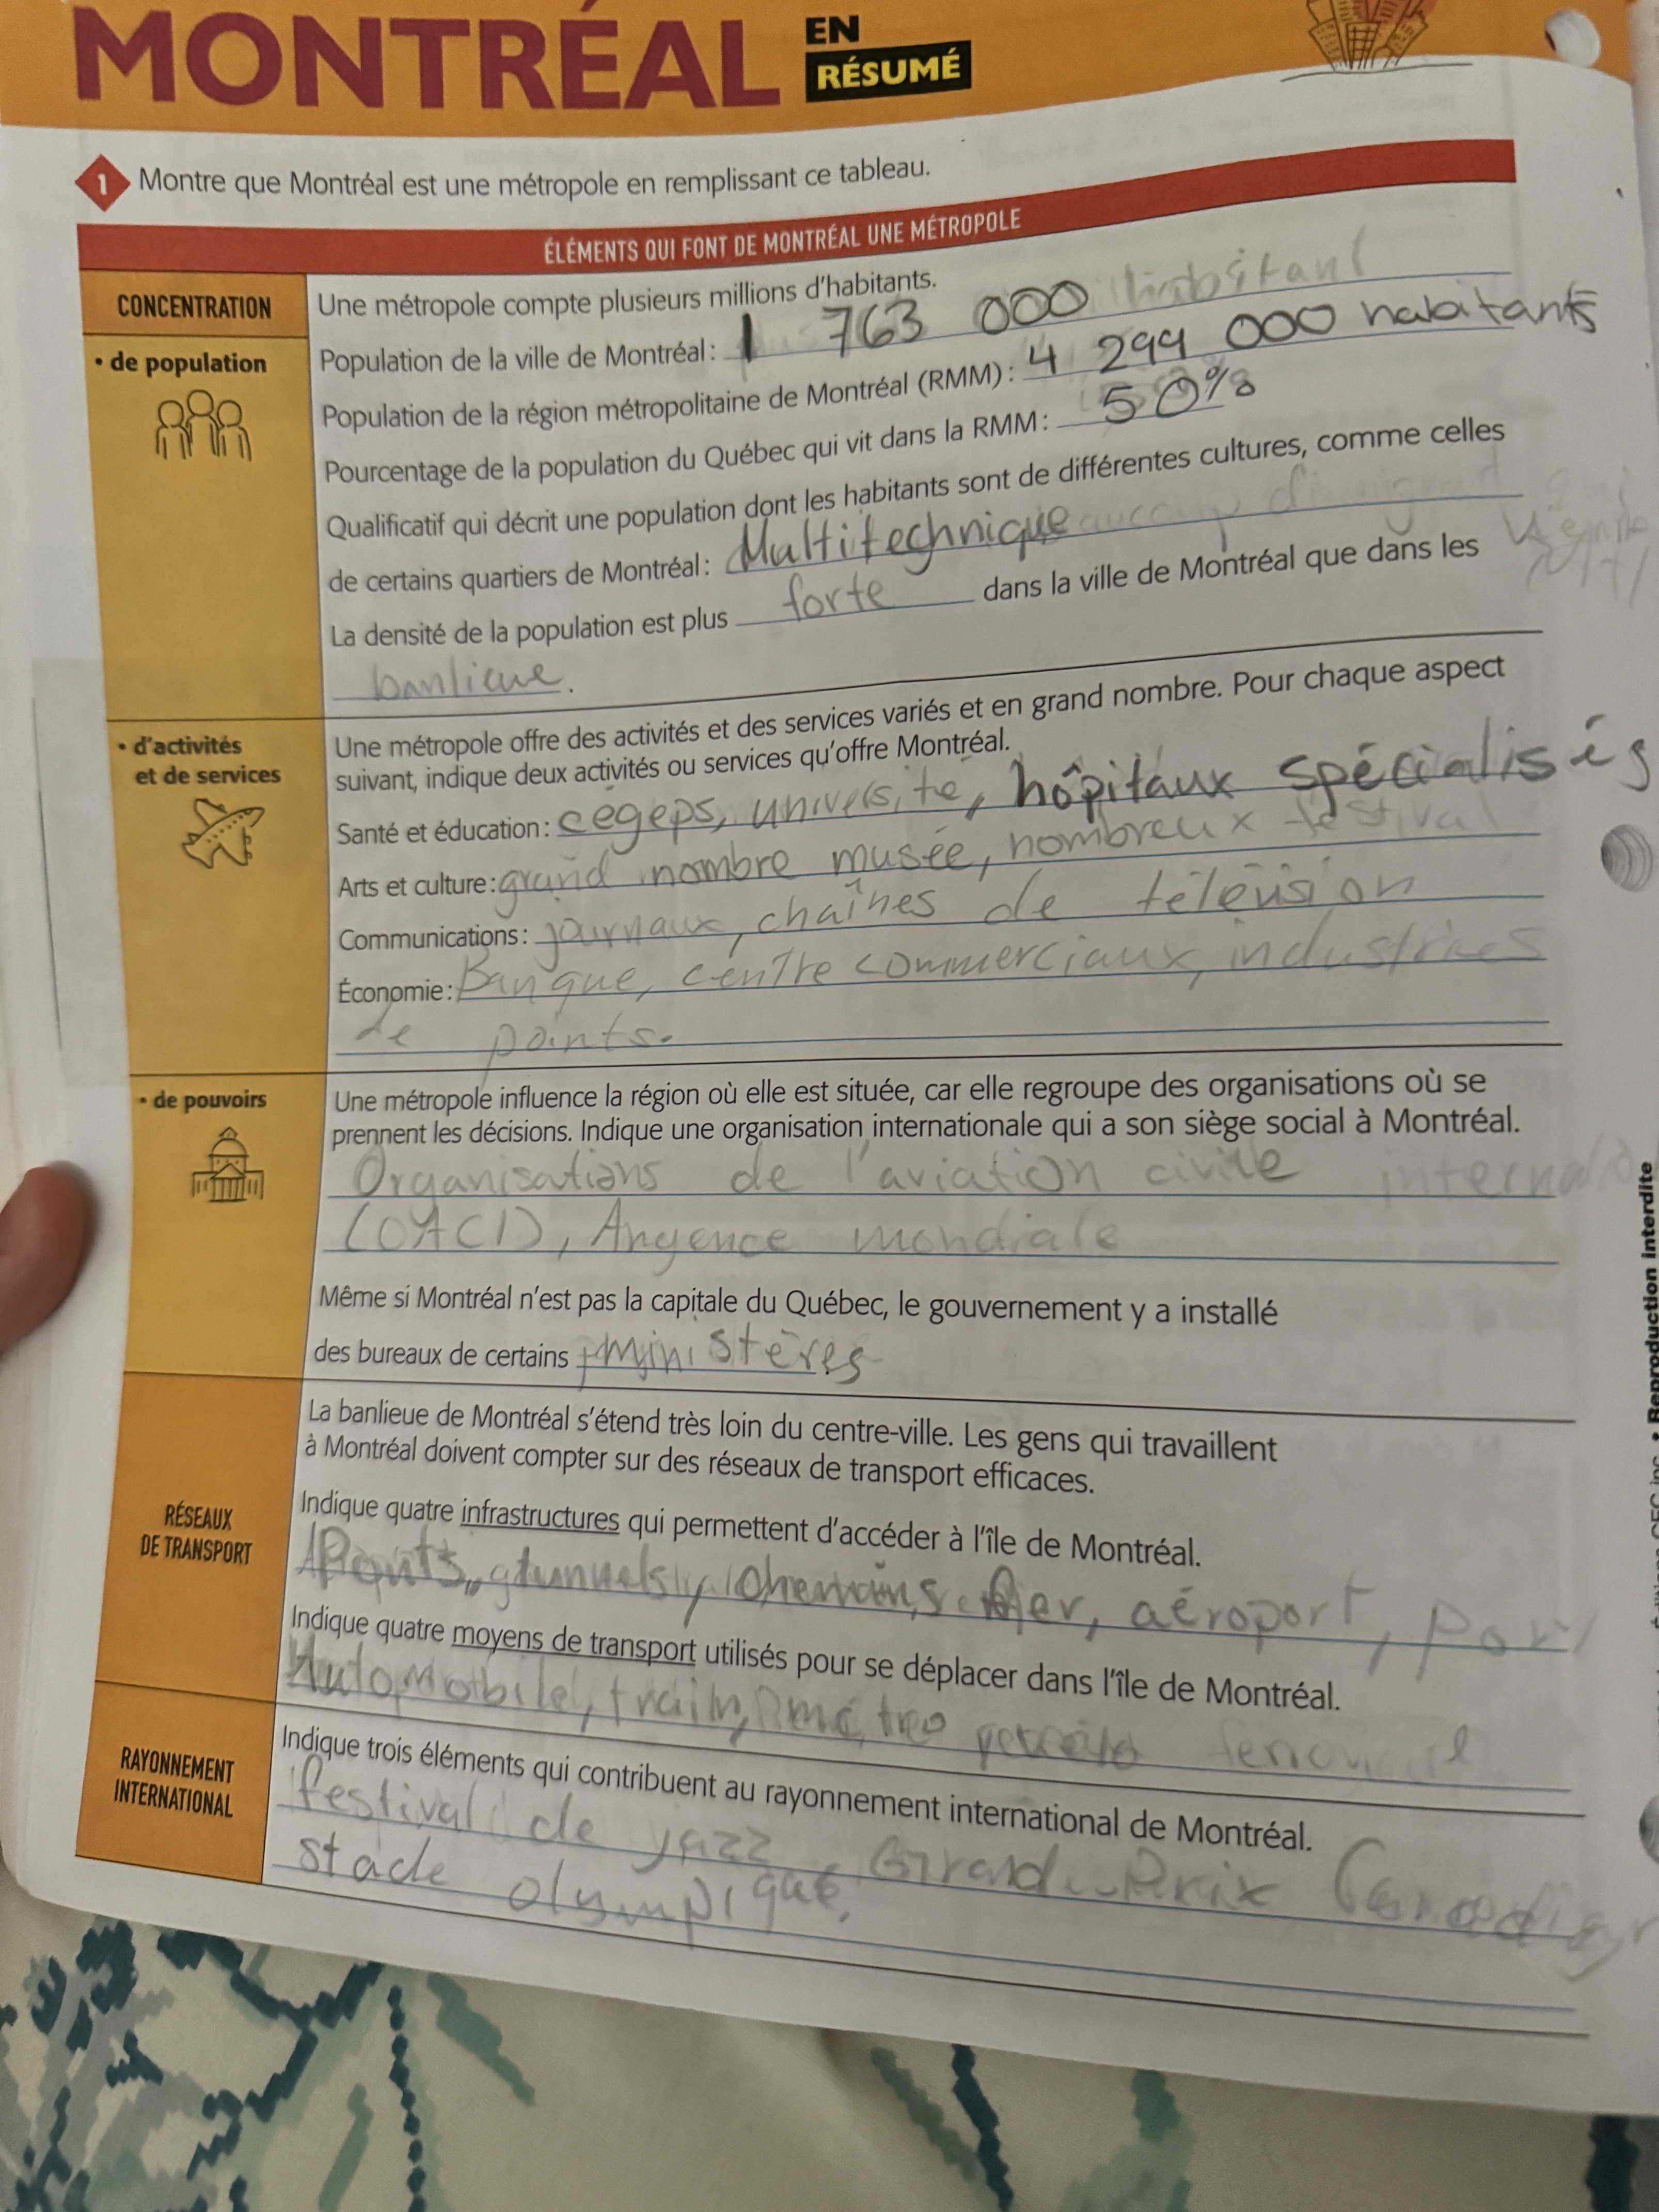 MONTRÉAL EN RÉSUMÉ
1 Montre que Montréal est une métropole en remplissant ce tableau.
ÉLÉMENTS QUI FONT DE MONTRÉAL UNE MÉTROPOLE
CONCENTRATION
• de population
Une métropole compte plusieurs millions d'habitants.
Population de la ville de Montréal : 1 763 000 habitant
Population de la région métropolitaine de Montréal (RMM) : 4 299 000 habitants
Pourcentage de la population du Québec qui vit dans la RMM : 50%
Qualificatif qui décrit une population dont les habitants sont de différentes cultures, comme celles
de certains quartiers de Montréal : Multitechnique
La densité de la population est plus forte dans la ville de Montréal que dans les
banlieue.
• d'activités
et de services
Une métropole offre des activités et des services variés et en grand nombre. Pour chaque aspect
suivant, indique deux activités ou services qu'offre Montréal.
Santé et éducation : cégeps, université, hôpitaux spécialisés
Arts et culture : grand nombre musée, nombreux festival
Communications : journaux, chaînes de télévision
Économie : Banque, centre commerciaux, industries
de points.
• de pouvoirs
Une métropole influence la région où elle est située, car elle regroupe des organisations où se
prennent les décisions. Indique une organisation internationale qui a son siège social à Montréal.
Organisations de l'aviation civile
(OACI), Angence mondiale
Même si Montréal n'est pas la capitale du Québec, le gouvernement y a installé
des bureaux de certains ministères
RÉSEAUX
DE TRANSPORT
La banlieue de Montréal s'étend très loin du centre-ville. Les gens qui travaillent
à Montréal doivent compter sur des réseaux de transport efficaces.
Indique quatre infrastructures qui permettent d'accéder à l'île de Montréal.
Ponts, tunnels, chemins fer, aéroport, port
Indique quatre moyens de transport utilisés pour se déplacer dans l'île de Montréal.
Automobile, train, métro
RAYONNEMENT
INTERNATIONAL
Indique trois éléments qui contribuent au rayonnement international de Montréal.
festival de jazz Grand-Prix
stade olympique.
• Reproduction interdite